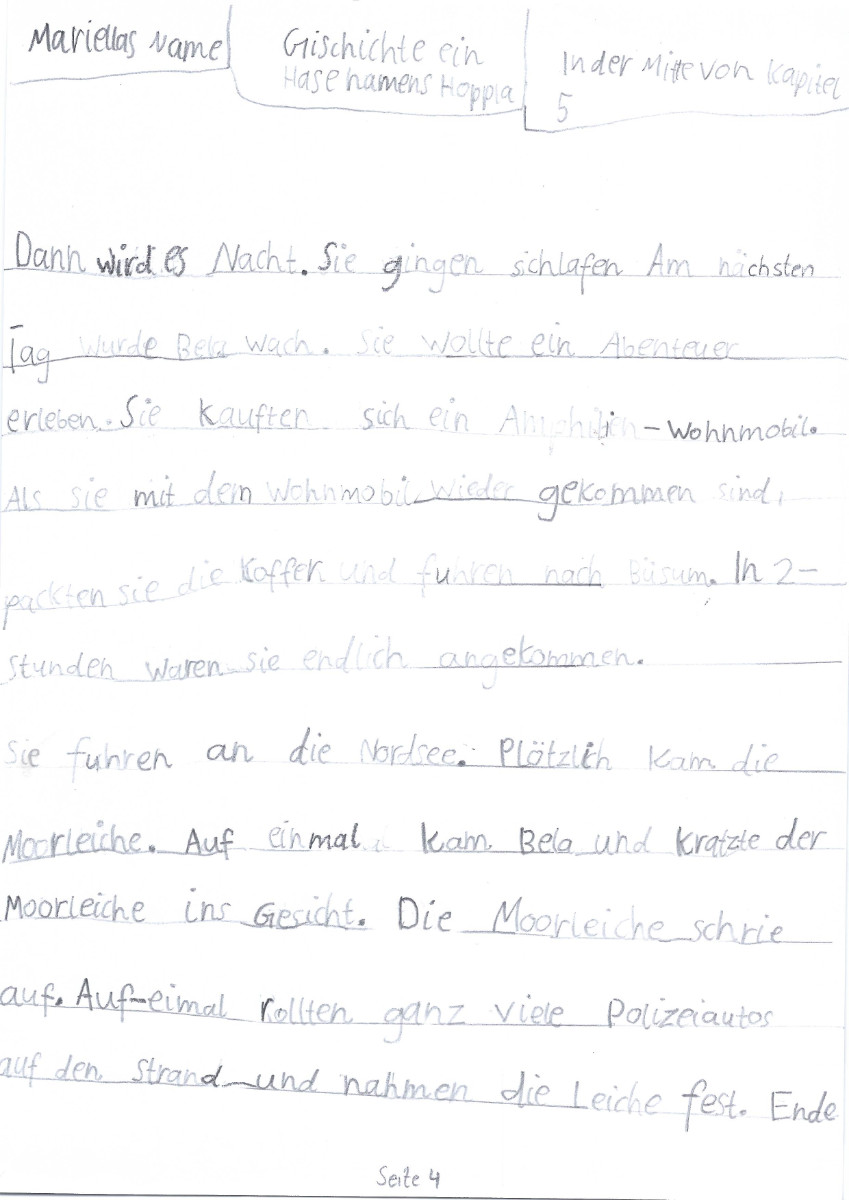 Mariellas Name
Gischichte ein
Hase namens Hoppla
In der Mitte von Kapitel
5
Dann wird es Nacht. Sie gingen sichlafen Am nächsten
Tag wurde Bela wach. Sie wollte ein Abenteuer
erleben. Sie kauften sich ein Amphibien-Wohnmobil.
Als sie mit dem Wohnmobil wieder gekommen sind,
packten sie die Koffer und fuhren nach Büsum. In 2-
Stunden waren sie endlich angekommen.
Sie fuhren an die Nordsee. Plötzlich kam die
Moorleiche. Auf einmal kam Bela und kratzte der
Moorleiche ins Gesicht. Die Moorleiche schrie
auf. Auf-eimal rollten ganz viele Polizeiautos
auf den Strand und nahmen die Leiche fest. Ende
Seite 4